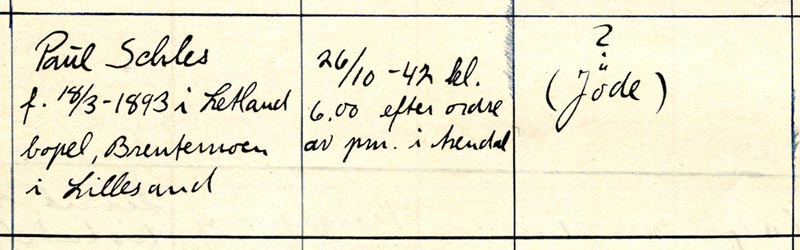 Paul Schles
f. 18/3-1893 i Letland
bopel, Brentemoen
i Lillesand
26/10 -42 kl.
6.00 efter ordre
av pm. i Arendal
?
(Jöde)